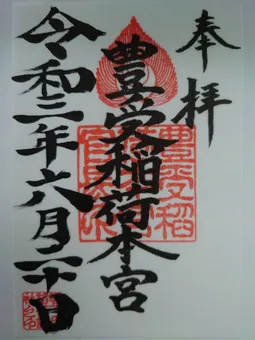 奉拝
豊受稲荷本宮
令和三年六月二十日